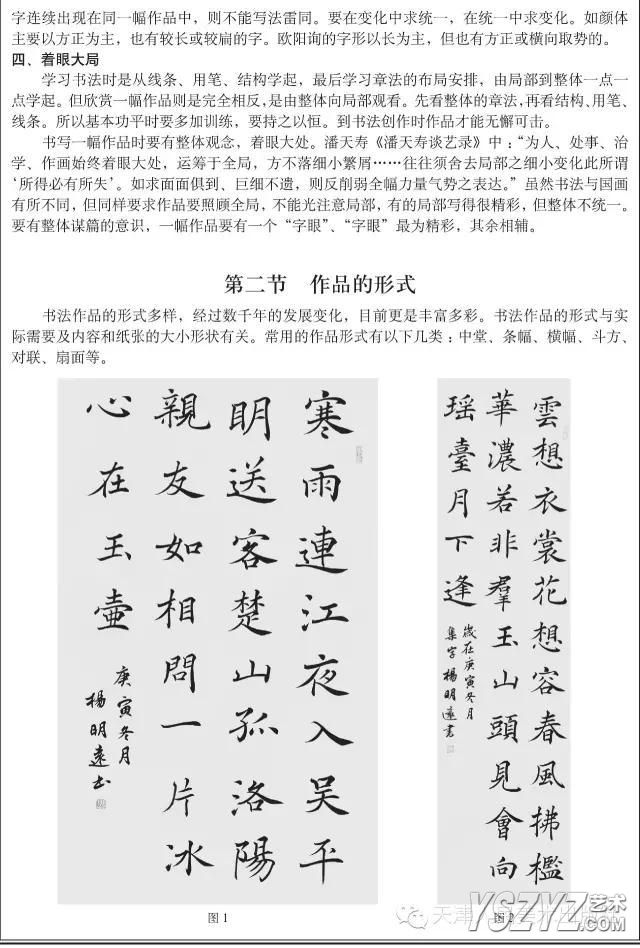 字连续出现在同一幅作品中，则不能写法雷同。要在变化中求统一，在统一中求变化。如颜体
主要以方正为主，也有较长或较扁的字。欧阳询的字形以长为主，但也有方正或横向取势的。
四、着眼大局
学习书法时是从线条、用笔、结构学起，最后学习章法的布局安排，由局部到整体一点一
点学起。但欣赏一幅作品则是完全相反，是由整体向局部观看。先看整体的章法，再看结构、用笔、
线条。所以基本功平时要多加训练，要持之以恒。到书法创作时作品才能无懈可击。
书写一幅作品时要有整体观念，着眼大处。潘天寿《潘天寿谈艺录》中：“为人、处事、治
学、作画始终着眼大处，运筹于全局，方不落细小繁屑……往往须舍去局部之细小变化此所谓
‘所得必有所失’。如求面面俱到、巨细不遗，则反削弱全幅力量气势之表达。”虽然书法与国画
有所不同，但同样要求作品要照顾全局，不能光注意局部，有的局部写得很精彩，但整体不统一。
要有整体谋篇的意识，一幅作品要有一个“字眼”、“字眼”最为精彩，其余相辅。
第二节 作品的形式
书法作品的形式多样，经过数千年的发展变化，目前更是丰富多彩。书法作品的形式与实
际需要及内容和纸张的大小形状有关。常用的作品形式有以下几类：中堂、条幅、横幅、斗方、
对联、扇面等。
寒雨連江夜入吴平
明送客楚山孤洛陽
親友如相問一片冰
心在玉壺
庚寅冬月
楊明遠书
图 1
雲想衣裳花想容春風拂檻
華濃若非羣玉山頭見會向
瑶臺月下逢
歲在庚寅冬月
集字楊明遠書
图 2
天津
YSZYZ艺术